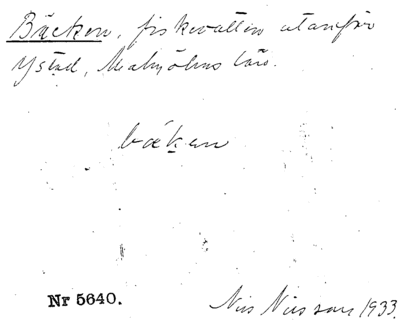 Bäcken, fiskevatten utanför
Ystad, Malmöhus län.
bäken
Nr 5640.
Nils Nilsson 1933.